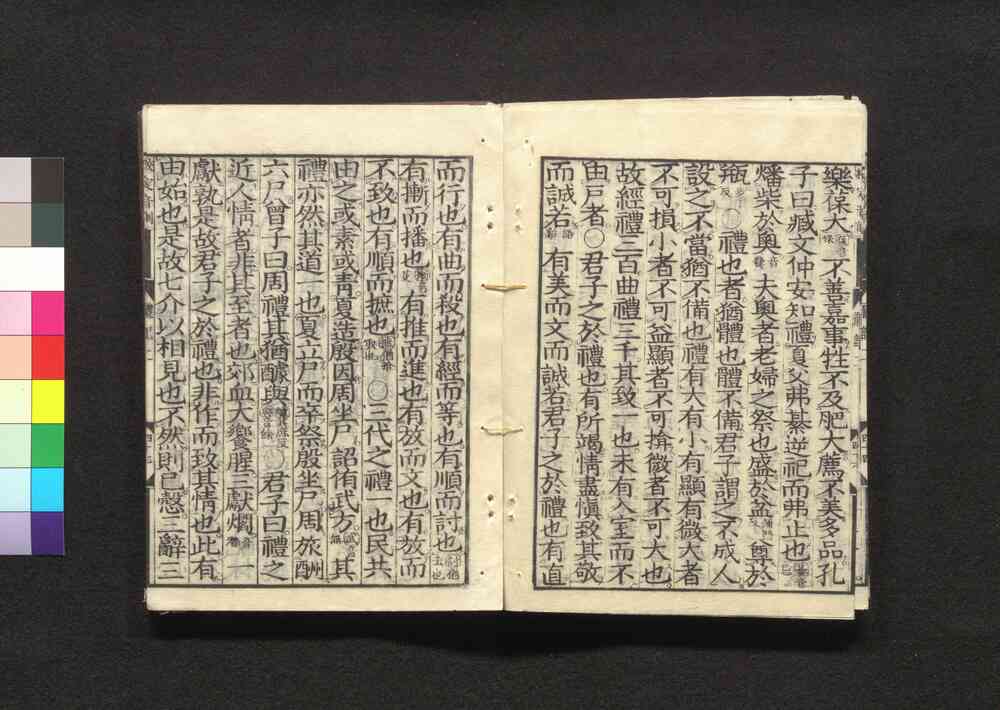 樂保大 不善嘉事牲不及肥大薦不美多品孔
子曰臧文仲安知禮夏父弗綦逆祀而弗止也
燔柴於奧 夫奧者老婦之祭也盛於盆 尊於
瓶 ○禮也者猶體也體不備君子謂之不成人
設之不當猶不備也禮有大有小有顯有微大者
不可損小者不可益顯者不可揜微者不可大也
故經禮三百曲禮三千其致一也未有入室而不
由戶者○君子之於禮也有所竭情盡愼致其敬
而誠若 有美而文而誠若君子之於禮也有直
而行也有曲而殺也有經而等也有順而討也
有摲而播也 有推而進也有放而文也有放而
不致也有順而摭也 ○三代之禮一也民共
由之或素或靑夏造殷因周坐尸詔侑武方 其
禮亦然其道一也夏立尸而卒祭殷坐尸周旅酬
六尸曾子曰周禮其猶醵與 ○君子曰禮之
近人情者非其至者也郊血大饗腥三獻爓 一
獻孰是故君子之於禮也非作而致其情也此有
由始也是故七介以相見也不然則已慤三辭三